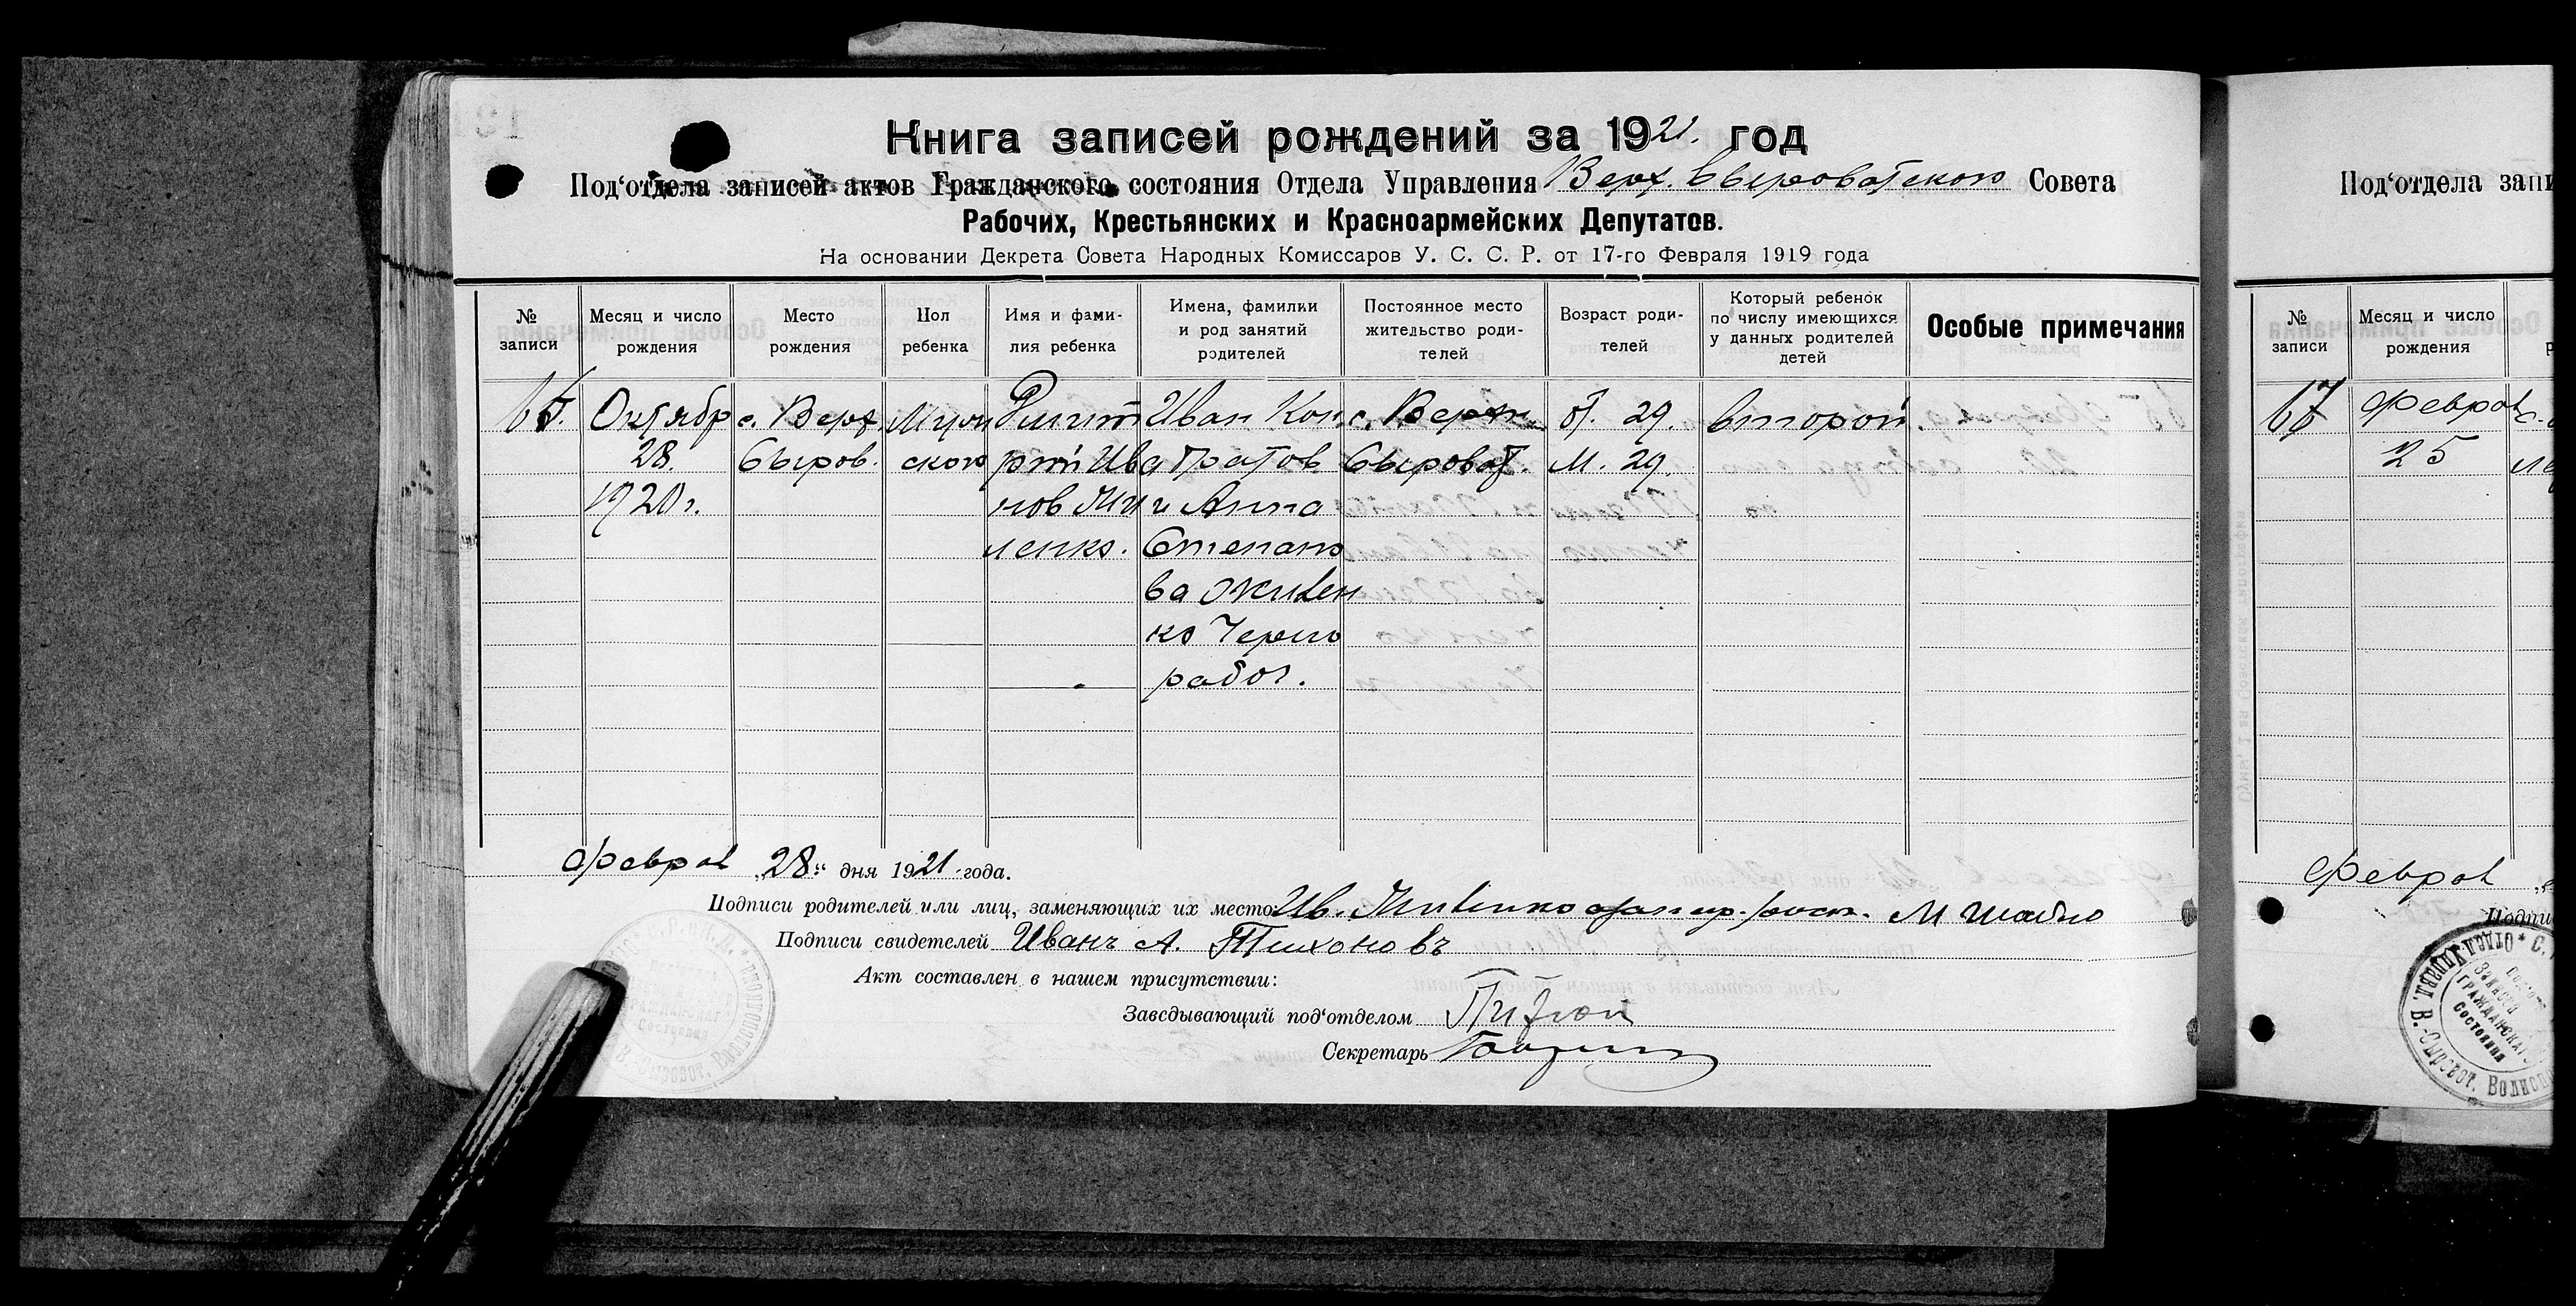 Книга записей рождений за 1921. год
Под'отдела записей актов Гражданского состояния Отдела Управления Верх. Сыроватского Совета
Рабочих, Крестьянских и Красноармейских Депутатов.
На основании Декрета Совета Народных Комиссаров У. С. С. Р. от 17-го Февраля 1919 года
№ записи
Месяц и число рождения
Место рождения
Пол ребенка
Имя и фами-лия ребенка
Имена, фамилии и род занятий родителей
Постоянное место жительство роди-телей
Возраст роди-телей
Который ребенок по числу имеющихся у данных родителей детей
Особые примечания
Октябр
28.
1920 г.
с. Верх.
Сыров.
Муж
ского
Дмит
рий Ива
нов
ленко.
Иван Кон
дратов
и Анна
Степано
ва
ко Черно
рабоч.
с. Верхн.
Сыроват.
О. 29.
М. 29.
второй
Феврал „28“ дня 1921 года.
Подписи родителей или лиц, заменяющих их место: Ив.
Подписи свидетелей Иванъ А. Тихоновъ
Акт составлен в нашем присутствии:
Заведывающий под'отделом
Секретарь
Под'отдела запи
№ записи
Месяц и число рождения
67
Феврал
25
Феврал